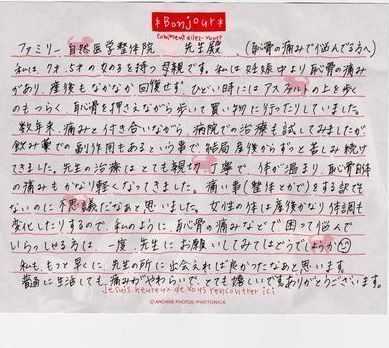 *Bonjour*
Comment allez-vous
ファミリー自然医学整体院 先生殿 (恥骨の痛みで悩んでる方へ)
私は、7才、5才の女の子を持つ母親です。私は妊娠中より恥骨の痛み
があり、産後もなかなか回復せず、ひどい時にはアスファルトの上を歩く
のもつらく、恥骨を押さえながら歩いて買い物に行ったりしていました。
数年来、痛みと付き合いながら、病院での治療も試してみましたが
飲み薬での副作用もあるという事で、結局産後からずっと苦しみ続け
てきました。先生の治療はとても親切、丁寧で、体が温まり、恥骨自体
の痛みもかなり軽くなってきました。痛い事(整体とかで)をする訳でも
ないのに不思議だなぁと思いました。女性の体も産後かなり体調も
変化したりするので、私のように、恥骨の痛みなどで困って悩んで
いらっしゃる方は、一度、先生にお願いしてみてはどうでしょうか
私も、もっと早くに、先生の所に出会えれば良かったなぁと思います。
普通に生活しても、痛みがやわらいで、とても嬉しいです。ありがとうございます。
Je suis heureux de vous rencontrer ici
© ARCHIVE PHOTOS / PHOTONICA